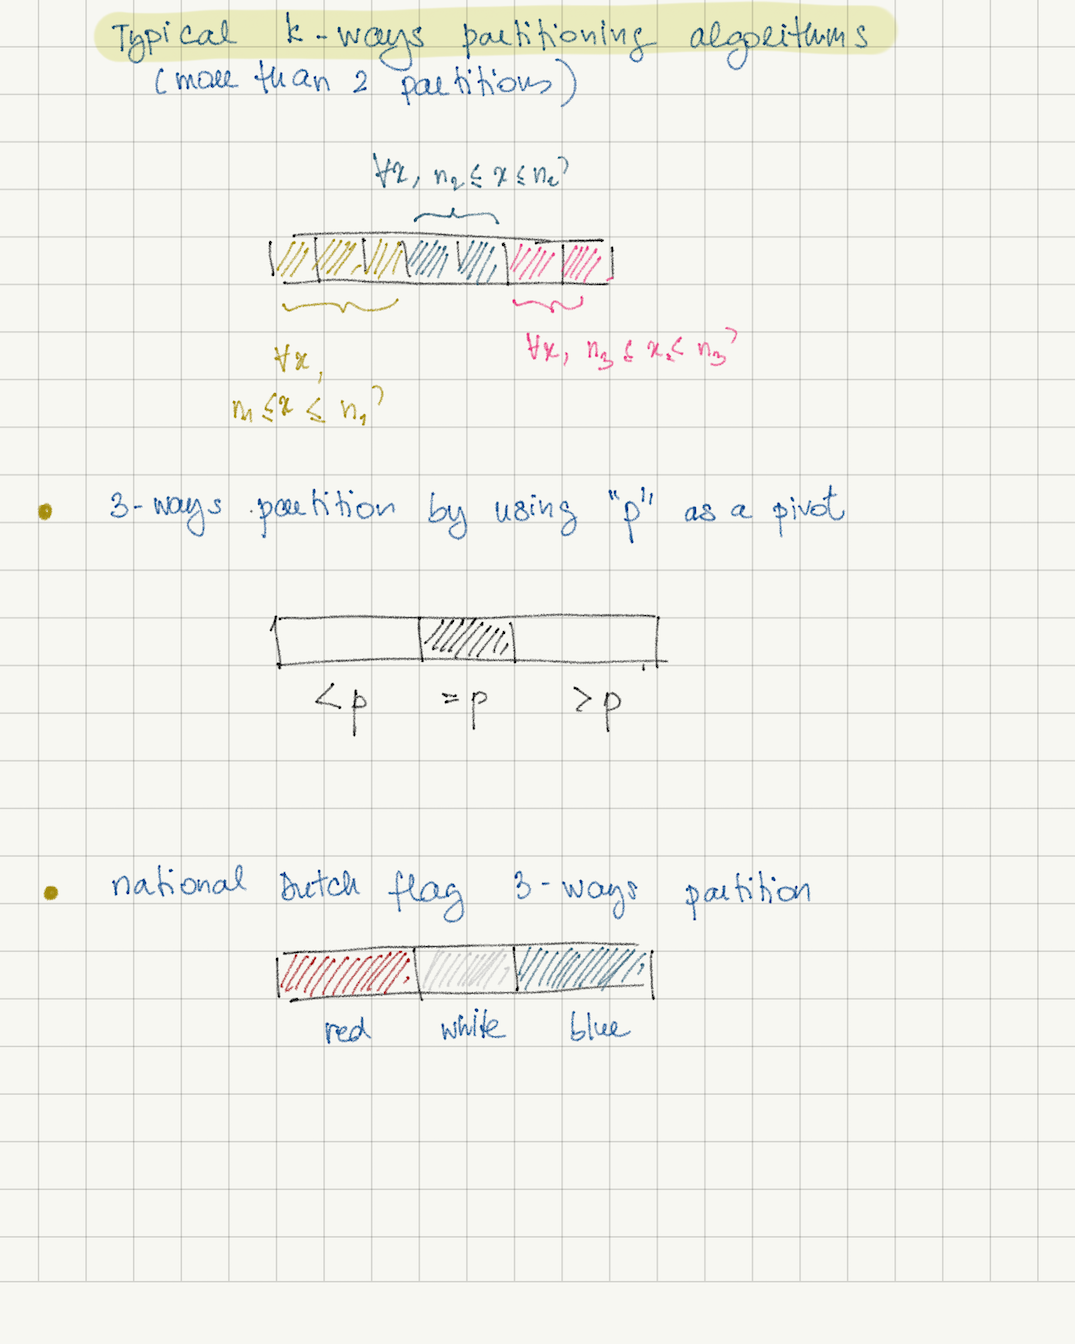 Typical k-ways partitioning algorithms
(more than 2 partitions)
∀x, n₂ ≤ x ≤ n₂'
∀x,
n₁ ≤ x ≤ n₁'
∀x, n₃ ≤ x ≤ n₃'
3-ways partition by using "p" as a pivot
< p = p > p
national Dutch flag 3-ways partition
red white blue